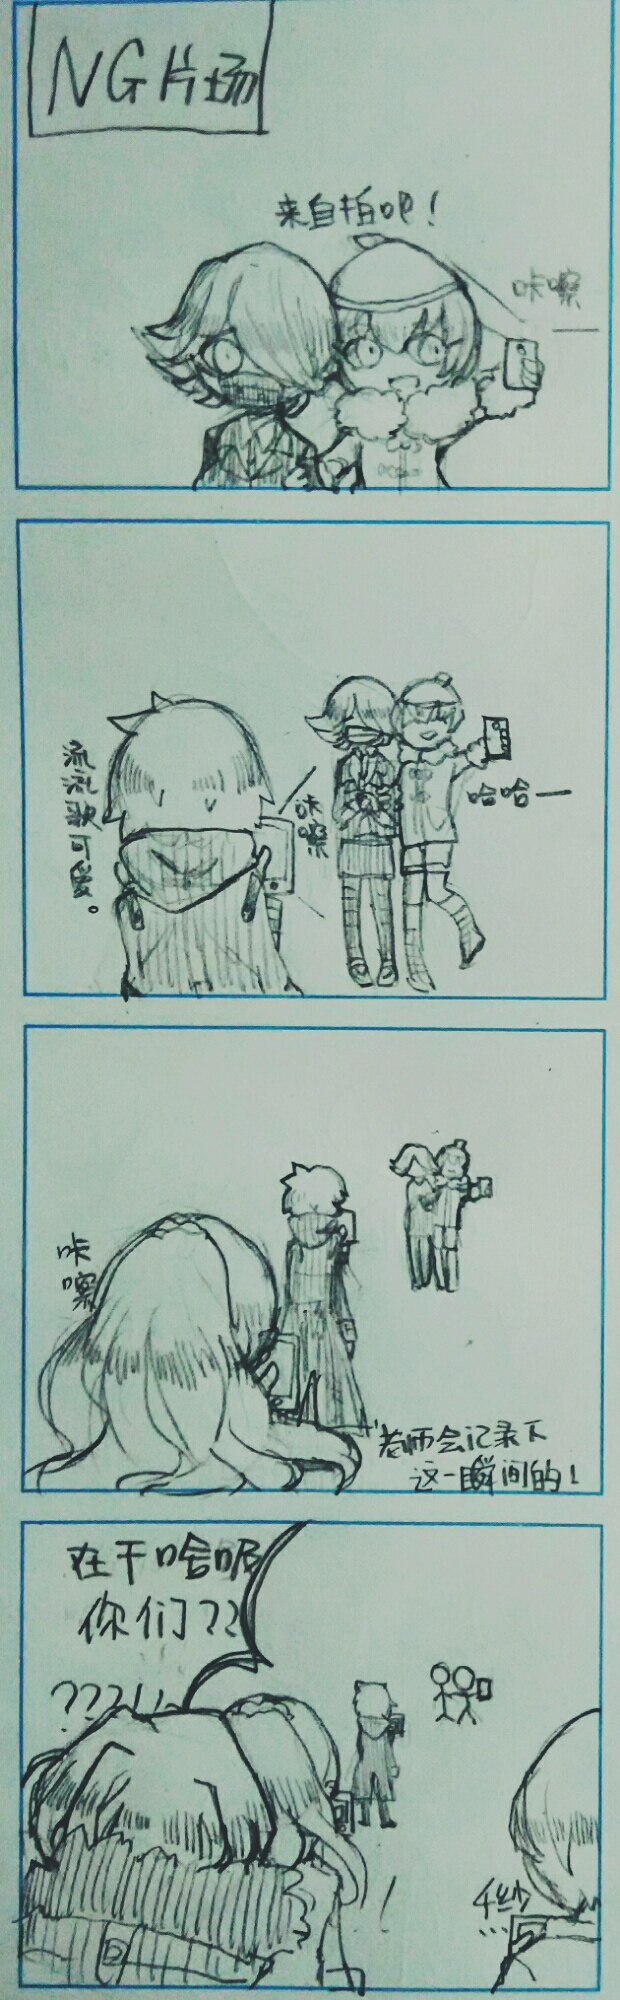 NG片场
来自拍吧！
咔嚓
流流歌可爱。
咔嚓
哈哈一
咔嚓
老师会记录下
这一瞬间的！
在干啥呢
你们??
???!!
千纱
...